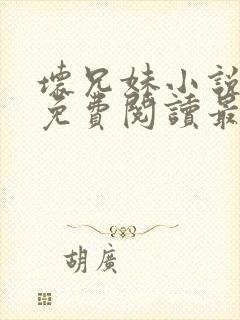 壞兄妹小說
免費閱讀最
胡廣